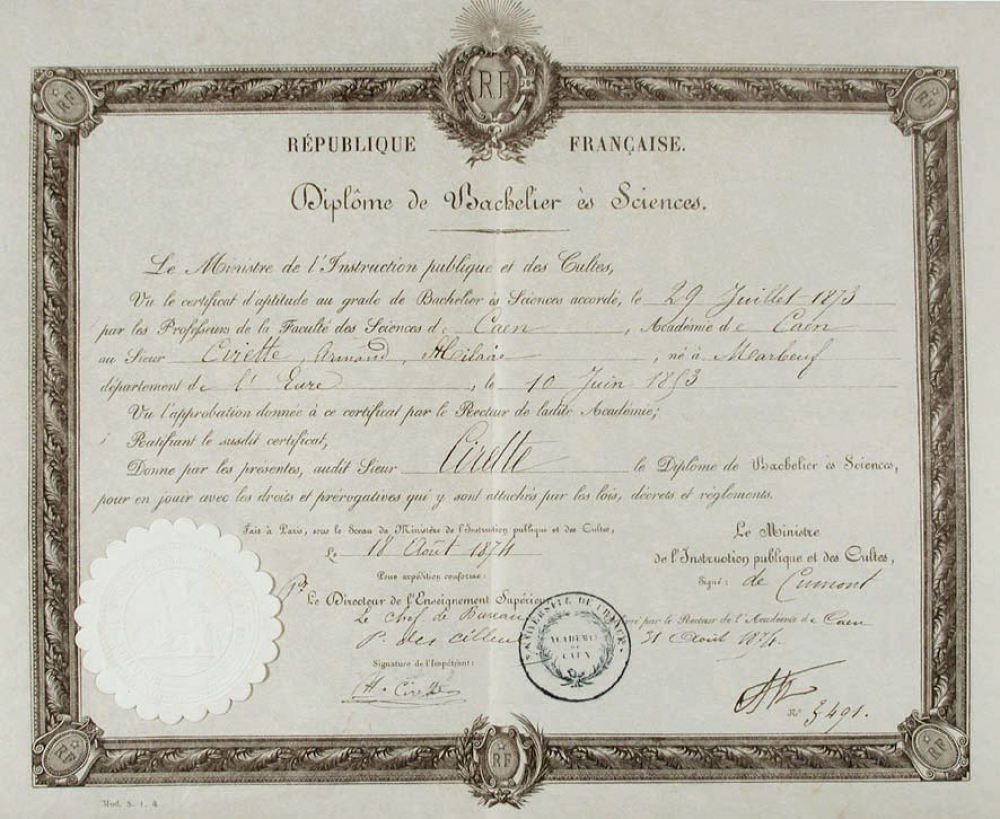 RF
RF
RF
RÉPUBLIQUE FRANÇAISE.
Diplôme de Bachelier ès Sciences.
Le Ministre de l'Instruction publique et des Cultes,
Vu le certificat d'aptitude au grade de Bachelier ès Sciences accordé, le 29 Juillet 1873
par les Professeurs de la Faculté des Sciences de Caen, Académie de Caen
au Sieur Cirette, Armand, Hilaire, né à Marbeuf
département de l'Eure, le 10 Juin 1853
Vu l'approbation donnée à ce certificat par le Recteur de ladite Académie;
Ratifiant le susdit certificat,
Donne par les présentes, audit Sieur Cirette le Diplôme de Bachelier ès Sciences,
pour en jouir avec les droits et prérogatives qui y sont attachés par les lois, décrets et règlements.
Fait à Paris, sous le Sceau du Ministère de l'Instruction publique et des Cultes,
Le 18 Août 1874
Le Ministre
de l'Instruction publique et des Cultes,
Signé: de Cumont
Pour expédition conforme:
Pr Le Directeur de l'Enseignement Supérieur
Le chef de Bureau
par le Recteur de l'Académie de Caen
31 Août 1874.
UNIVERSITÉ DE FRANCE
ACADÉMIE
DE
CAEN
Signature de l'Impétrant:
H. Cirette
N° 3491.
RF
RF
RF
Mod. S. 1. &